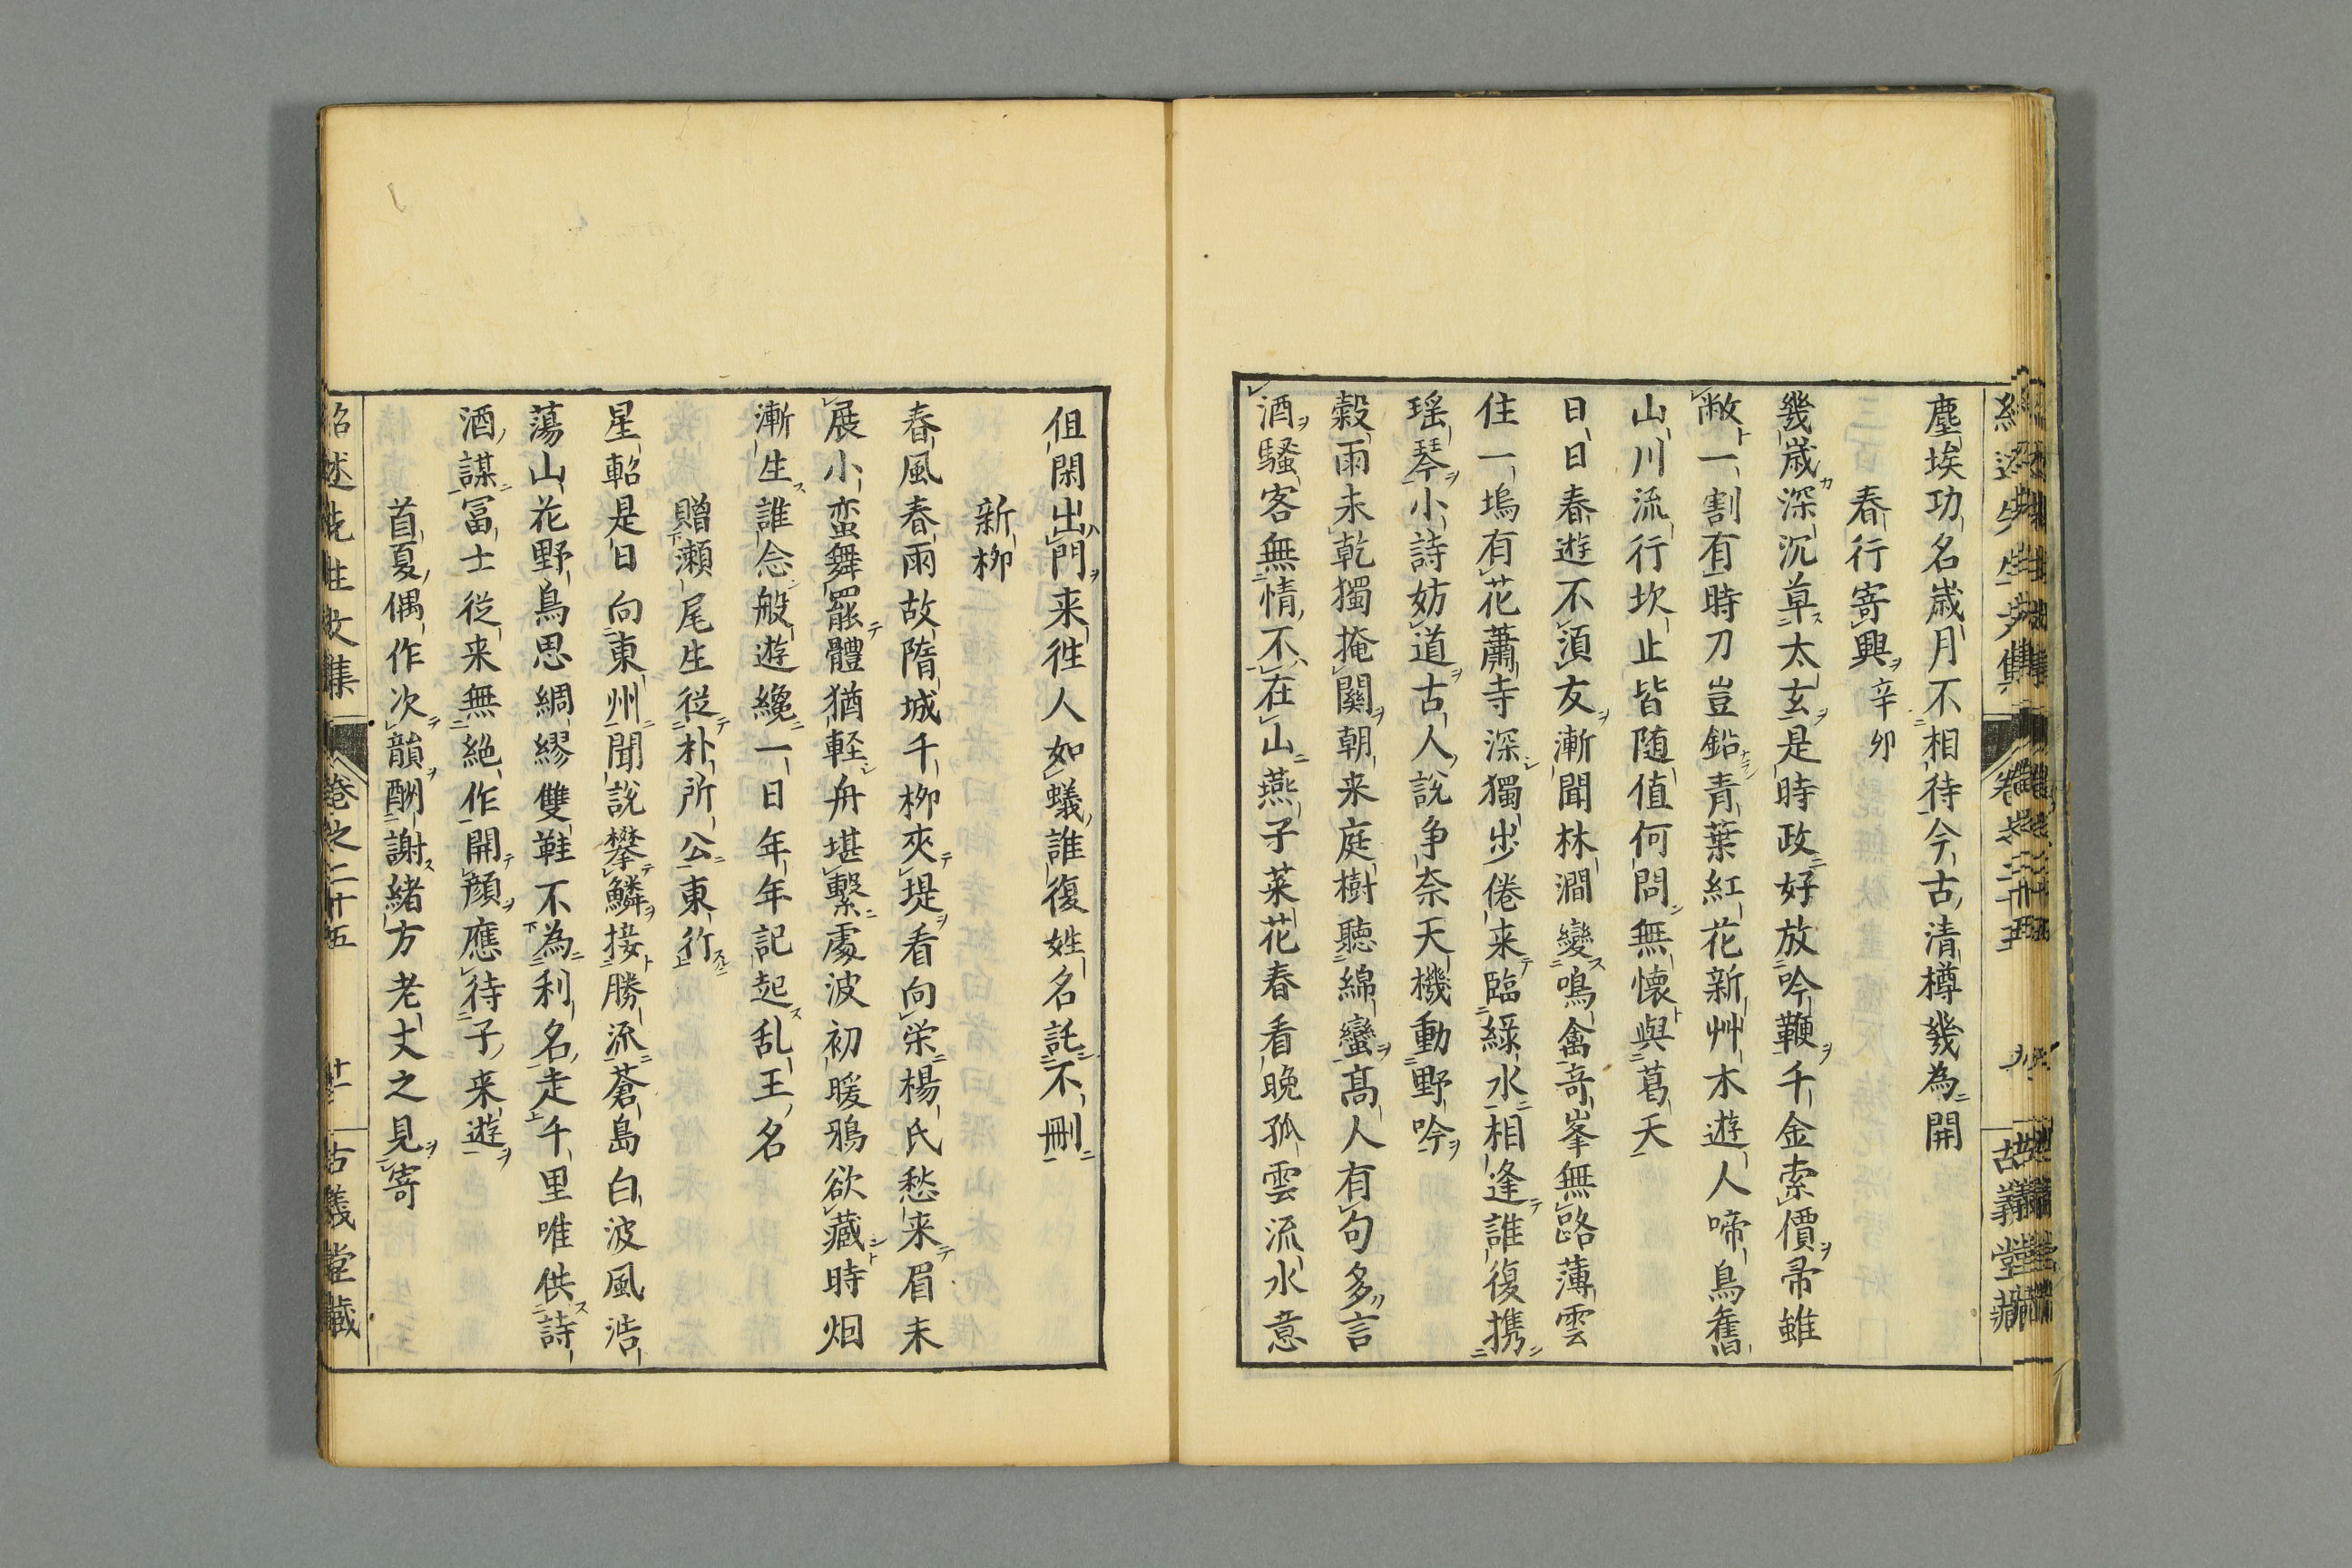 塵埃功名歳月不相待今古清樽幾為開
春行寄興 辛卯
幾歳深沉草太玄是時政好放吟鞭千金索價帚雖
敝一割有時刀豈鉛青葉紅花新艸木遊人啼鳥舊
山川流行坎止皆随值何問無懷與葛天
日日春遊不須友漸聞林澗變鳴禽奇峯無路薄雲
住一塢有花蕭寺深獨步倦来臨緑水相逢誰復携
瑶琴小詩妨道古人說争奈天機動野吟
穀雨未乾獨掩關朝来庭樹聽綿蠻髙人有句多言
酒騷客無情不在山燕子菜花春看晚孤雲流水意
俱閑出門来往人如蟻誰復姓名託不刪
新柳
春風春雨故隋城千柳夾堤看向栄楊氏愁来眉未
展小蛮舞罷體猶軽舟堪繫處波初暖鴉欲藏時烟
漸生誰念般遊纔一日年年記起乱王名
贈瀬尾生從朴所公東行
星軺是日向東州聞說攀鱗接勝流蒼島白波風浩
蕩山花野鳥思綢繆雙鞋不為利名走千里唯供詩
酒謀冨士從来無絶作開顔應待子来遊
首夏偶作次韻酬謝緒方老丈之見寄
紹述先生文集 卷之二十五 十一 古義堂藏